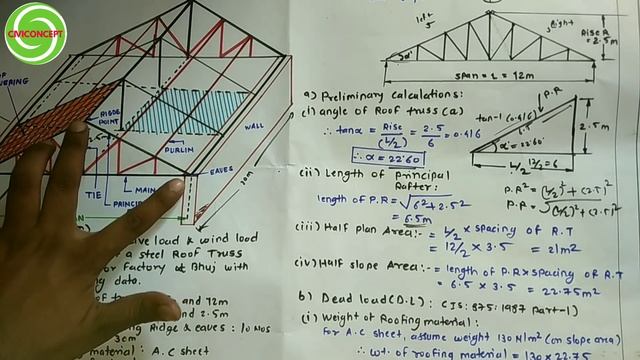 CIVICONCEPT
RIDGE POINT
WALL
PURLIN
EAVES
TIE
MAIN
20m
ive load & wind load
a steel Roof Truss
or Factory at Bhuj with
ng data.
and 12m
and 2.5m
ing Ridge & eaves : 10 Nos
3cm
material : A.C sheet
Left
Right
5
Rise R = 2.5m
α
SPAN = L = 12m
a) Preliminary Calculations:
(i) angle of Roof truss (α)
∴ tanα = Rise/(L/2) = 2.5/6 = 0.416
∴ α = 22.60
P.R
tan-1 (0.416)
α = 22.60
2.5m
L/2 12/2 = 6
(ii) Length of principal Rafter:
length of P.R = √6²+2.5²
= 6.5m
P.R² = (L/2)² + (2.5)²
P.R = √(L/2)² + (2.5)²
(iii) Half plan Area:- = L/2 × spacing of R.T
= 12/2 × 3.5 = 21m²
(iv) Half slope Area:- = length of P.R × spacing of R.T
= 6.5 × 3.5 = 22.75m²
b) Dead load (D.L): (IS: 875: 1987 part-1)
(i) Weight of Roofing material:
For A.C sheet, assume weight 130 N/m² (on slope area)
∴ wt. of roofing material = 130 × 22.75